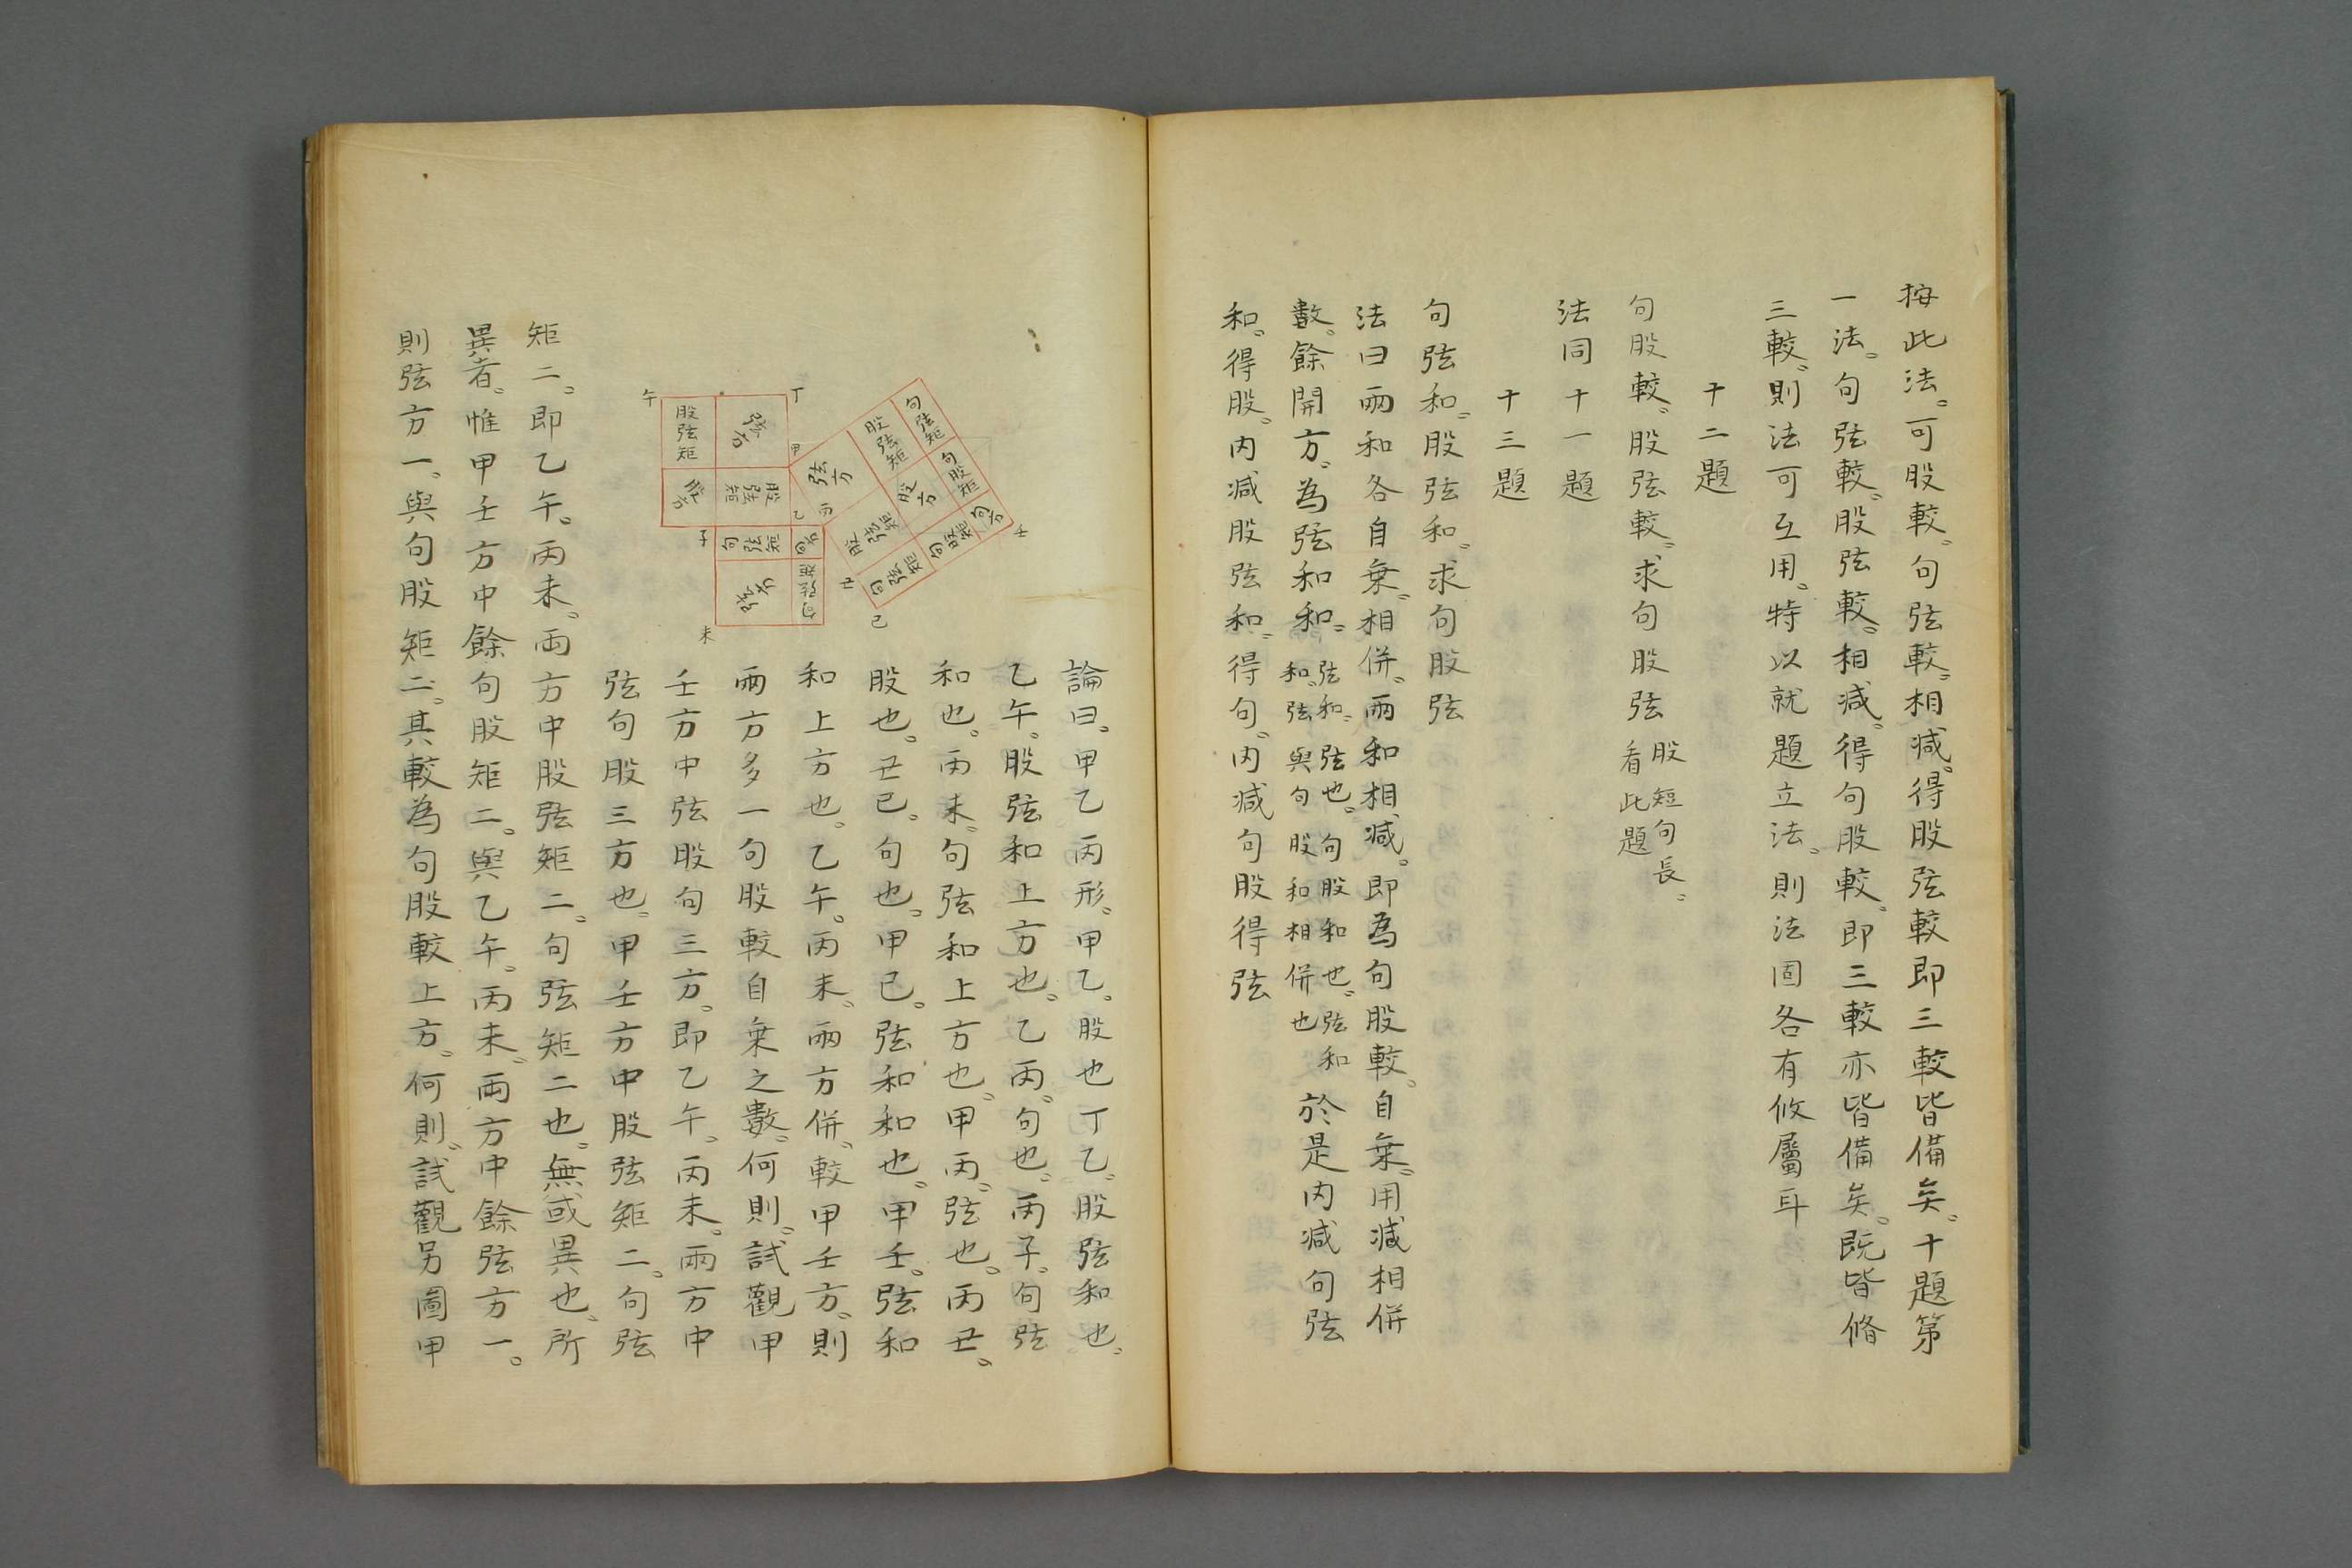 按此法。可股較。句弦較。相減。得股弦較即三較皆備矣。十題第
一法。句弦較。股弦較。相減。得句股較。即三較亦皆備矣。既皆脩
三較。則法可互用。特以就題立法。則法固各有攸屬耳
十二題
句股較。股弦較。求句股弦
股短句長。
看此題
法同十一題
十三題
句弦和。股弦和。求句股弦
法曰兩和各自乗。相併。兩和相減。即為句股較。自乗。用減相併
數。餘開方。為弦和和。
弦和。弦也。句股和也。弦和
和。弦與句股和相併也
於是內減句弦
和。得股。內減股弦和。得句。內減句股得弦
論曰。甲乙丙形。甲乙。股也丁乙。股弦和也。
乙午。股弦和上方也。乙丙。句也。丙子。句弦
和也。丙未。句弦和上方也。甲丙。弦也。丙丑。
股也。丑已。句也。甲已。弦和和也。甲壬。弦和
和上方也。乙午。丙未。兩方併。較甲壬方。則
兩方多一句股較自乗之數。何則。試觀甲
壬方中弦股句三方。即乙午。丙未。兩方中
弦句股三方也。甲壬方中股弦矩二。句弦
矩二。即乙午。丙未。兩方中股弦矩二。句弦矩二也。無或異也。所
異者。惟甲壬方中餘句股矩二。與乙午。丙未。兩方中餘弦方一。
則弦方一。與句股矩二。其較為句股較上方。何則。試觀另圖甲
午
丁
股弦矩
弦方
甲
股方
股弦矩
乙
丙
子
句弦矩
句方
弦方
句弦矩
未
弦方
股弦矩
句弦矩
股方
句股矩
股弦矩
句股矩
句方
句弦矩
丑
己
壬